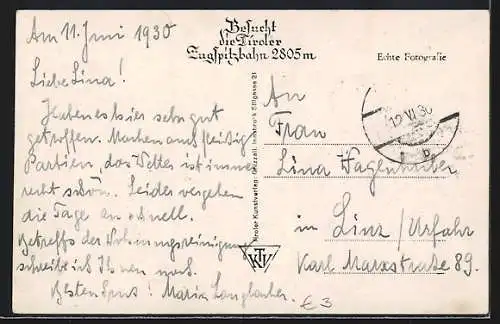 Am 11. Juni 1930
Besucht
die Tiroler
Zugspitzbahn 2805 m
Echte Fotografie
Liebe Lina!
Haben es hier sehr gut
getroffen. Machen auch fleißig
Partien, das Wetter ist immer
recht schön. Leider vergehen
die Tage zu schnell.
Betreffs der Wohnungsreinigung
schreibe ich Ihnen noch.
Besten Gruß! Maria
Tiroler Kunstverlag Innsbruck Sillgasse 21
KTV
An
Frau
Lina Wagenhuber
in Linz / Urfahr
Karl Marxstraße 89.
12 VI 30
b
€3